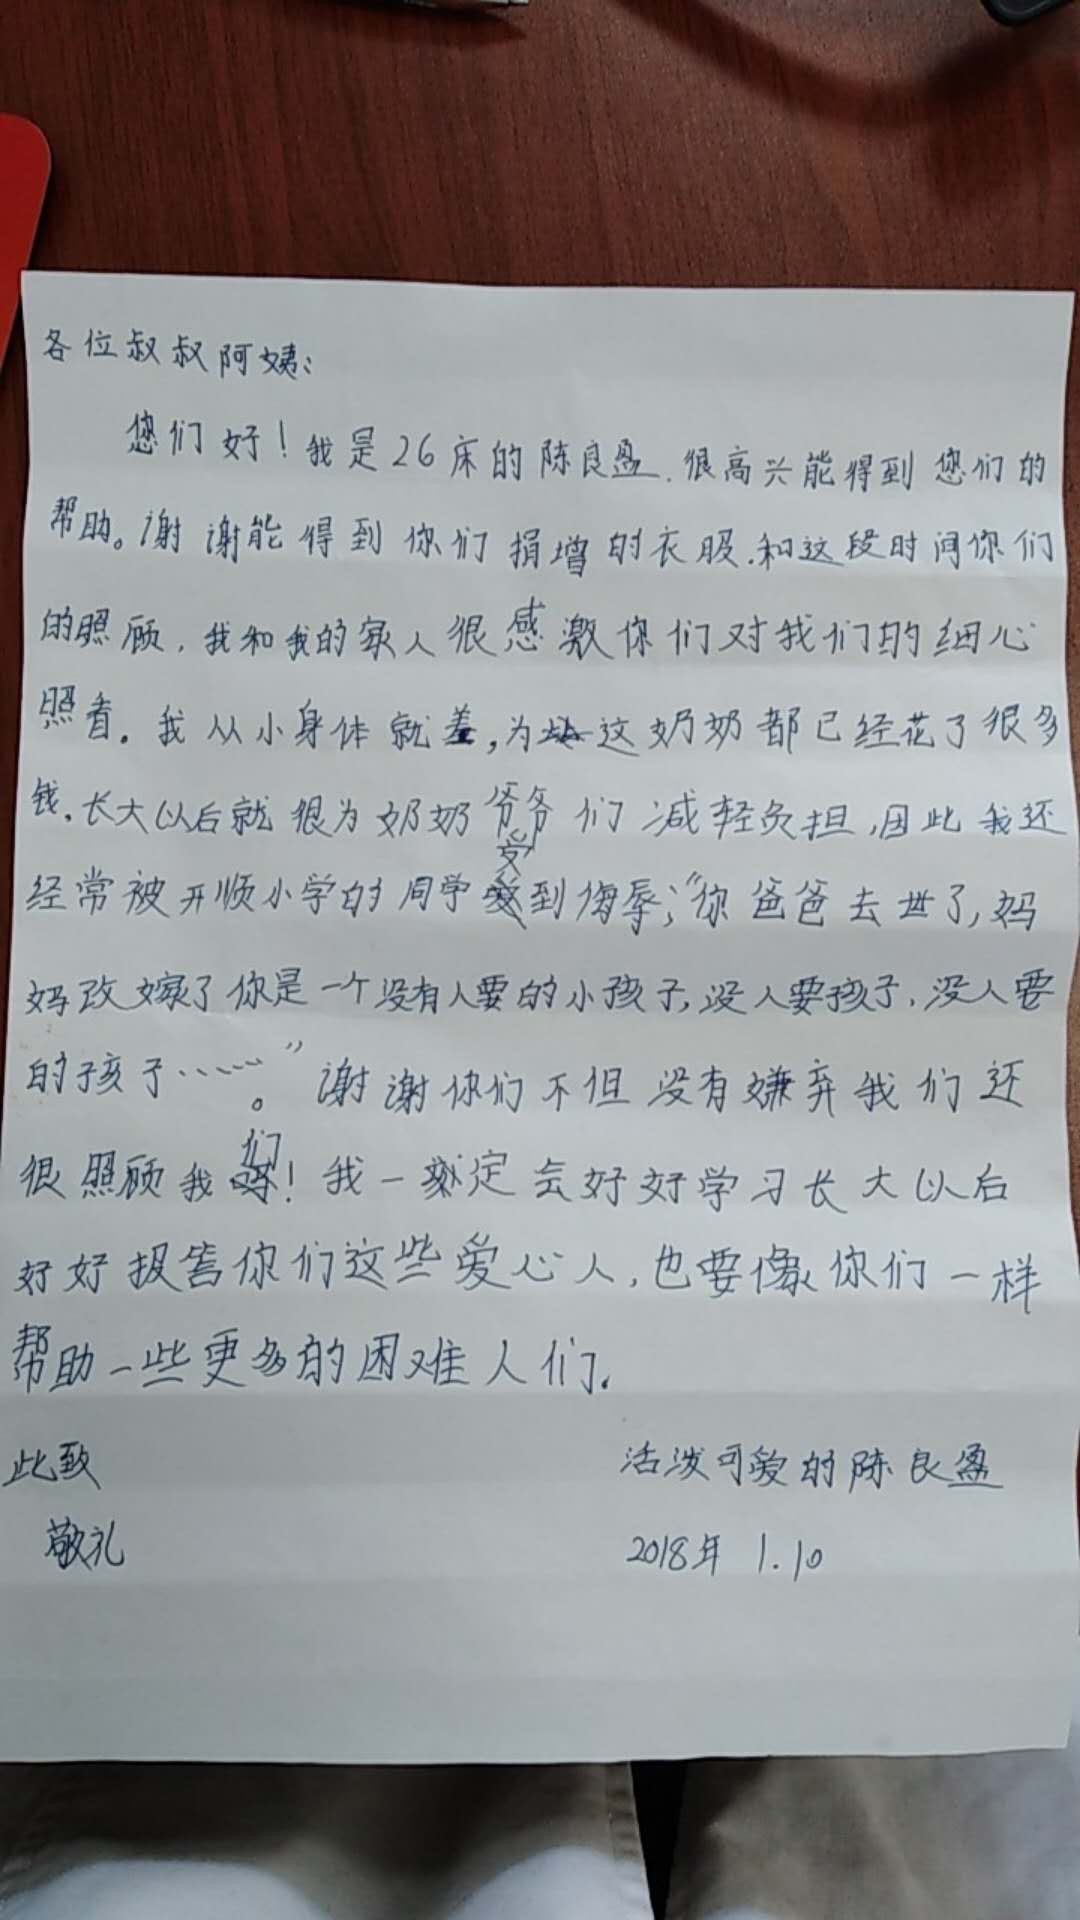 各位叔叔阿姨:
您们好!我是26床的陈良盈.很高兴能得到您们的
帮助。谢谢能得到你们捐增的衣服.和这段时间你们
的照顾,我和我的家人很感激你们对我们的细心
照看。我从小身体就差,为这奶奶都已经花了很多
钱.长大以后就很为奶奶爷爷们减轻负担,因此我还
经常被开顺小学的同学受到侮辱;“你爸爸去世了,妈
妈改嫁了你是一个没有人要的小孩子,没人要孩子,没人要
的孩子……”。谢谢你们不但没有嫌弃我们还
很照顾我们!我一定会好好学习长大以后
好好报答你们这些爱心人,也要像你们一样
帮助一些更多的困难人们.
此致
活泼可爱的陈良盈
敬礼
2018年 1.10